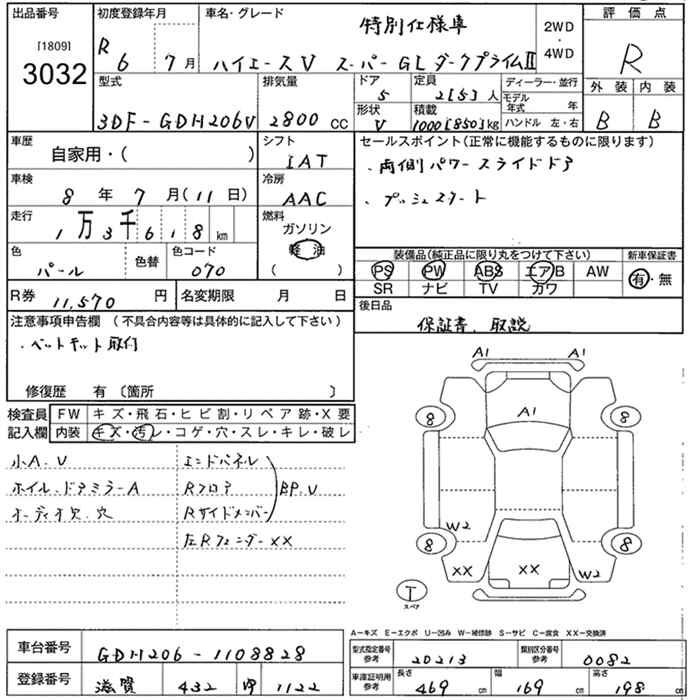 出品番号 初度登録年月 車名・グレード 特別仕様車 2WD・4WD 評価点
[1809]
3032
R 6 7月 ハイエースV スーパーGL ダークプライムⅡ R
型式 排気量 ドア 定員 ディーラー・並行 外装 内装
5 2[5]人 モデル年式 年
3DF-GDH206V 2800cc 形状 積載 ハンドル 左・右
V 1000[850]kg B B
車歴 シフト セールスポイント(正常に機能するものに限ります)
自家用・( ) IAT ・両側パワースライドドア
車検 冷房
8年 7月(11日) AAC ・プッシュスタート
走行 燃料
1万3千618km ガソリン
軽油
( )
色 色替 色コード 装備品(純正品に限り丸をつけて下さい) 新車保証書
パール 070 PS PW ABS エアB AW 有・無
SR ナビ TV カワ
R券 11,570円 名変期限 月 日 後日品
保証書、取説
注意事項申告欄 (不具合内容等は具体的に記入して下さい)
・ベットキット取付
修復歴 有 〔箇所 〕
検査員 FW キズ・飛石・ヒビ割・リペア跡・X要
記入欄 内装 キズ・汚レ・コゲ・穴・スレ・キレ・破レ
小A.V エンドパネル
ホイル.ドアミラーA Rフロア BP.V
オーディオ欠.穴 Rサイドメンバー
左RフェンダーXX
A1 A1
A1
8 8
W2
8 8
XX XX W2
T
スペア
A=キズ E=エクボ U=凹み W=補修跡 S=サビ C=腐食 XX=交換済
車台番号 GDH206-1108828
型式指定番号 参考 20213 類別区分番号 参考 0082
登録番号 滋賀 432 1122
車庫証明用 参考 長さ 469cm 幅 169cm 高さ 198cm